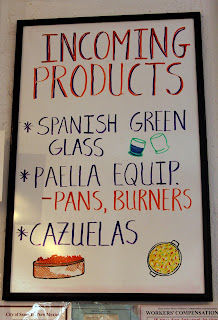 INCOMING
PRODUCTS
* SPANISH GREEN
GLASS
* PAELLA EQUIP.
- PANS, BURNERS
* CAZUELAS
WORKERS' COMPENSATION